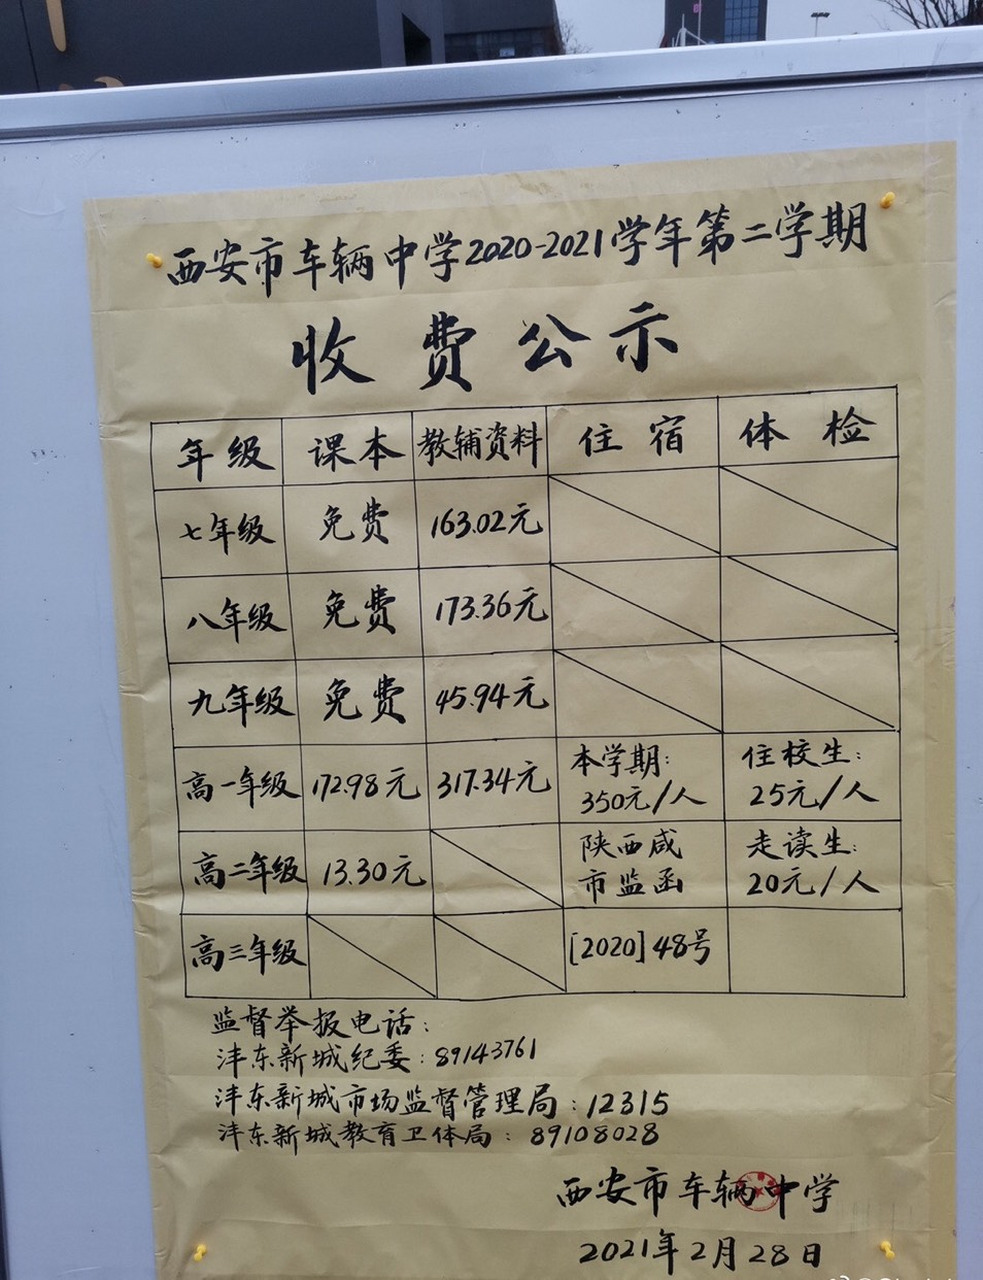 西安市车辆中学2020-2021学年第二学期
收费公示
年级 课本 教辅资料 住宿 体检
七年级 免费 163.02元
八年级 免费 173.36元
九年级 免费 45.94元
高一年级 172.98元 317.34元 本学期: 350元/人 住校生: 25元/人
高二年级 13.30元 陕西咸市监函 走读生: 20元/人
高三年级 [2020]48号
监督举报电话:
沣东新城纪委: 89143761
沣东新城市场监督管理局: 12315
沣东新城教育卫体局: 89108028
西安市车辆中学
2021年2月28日